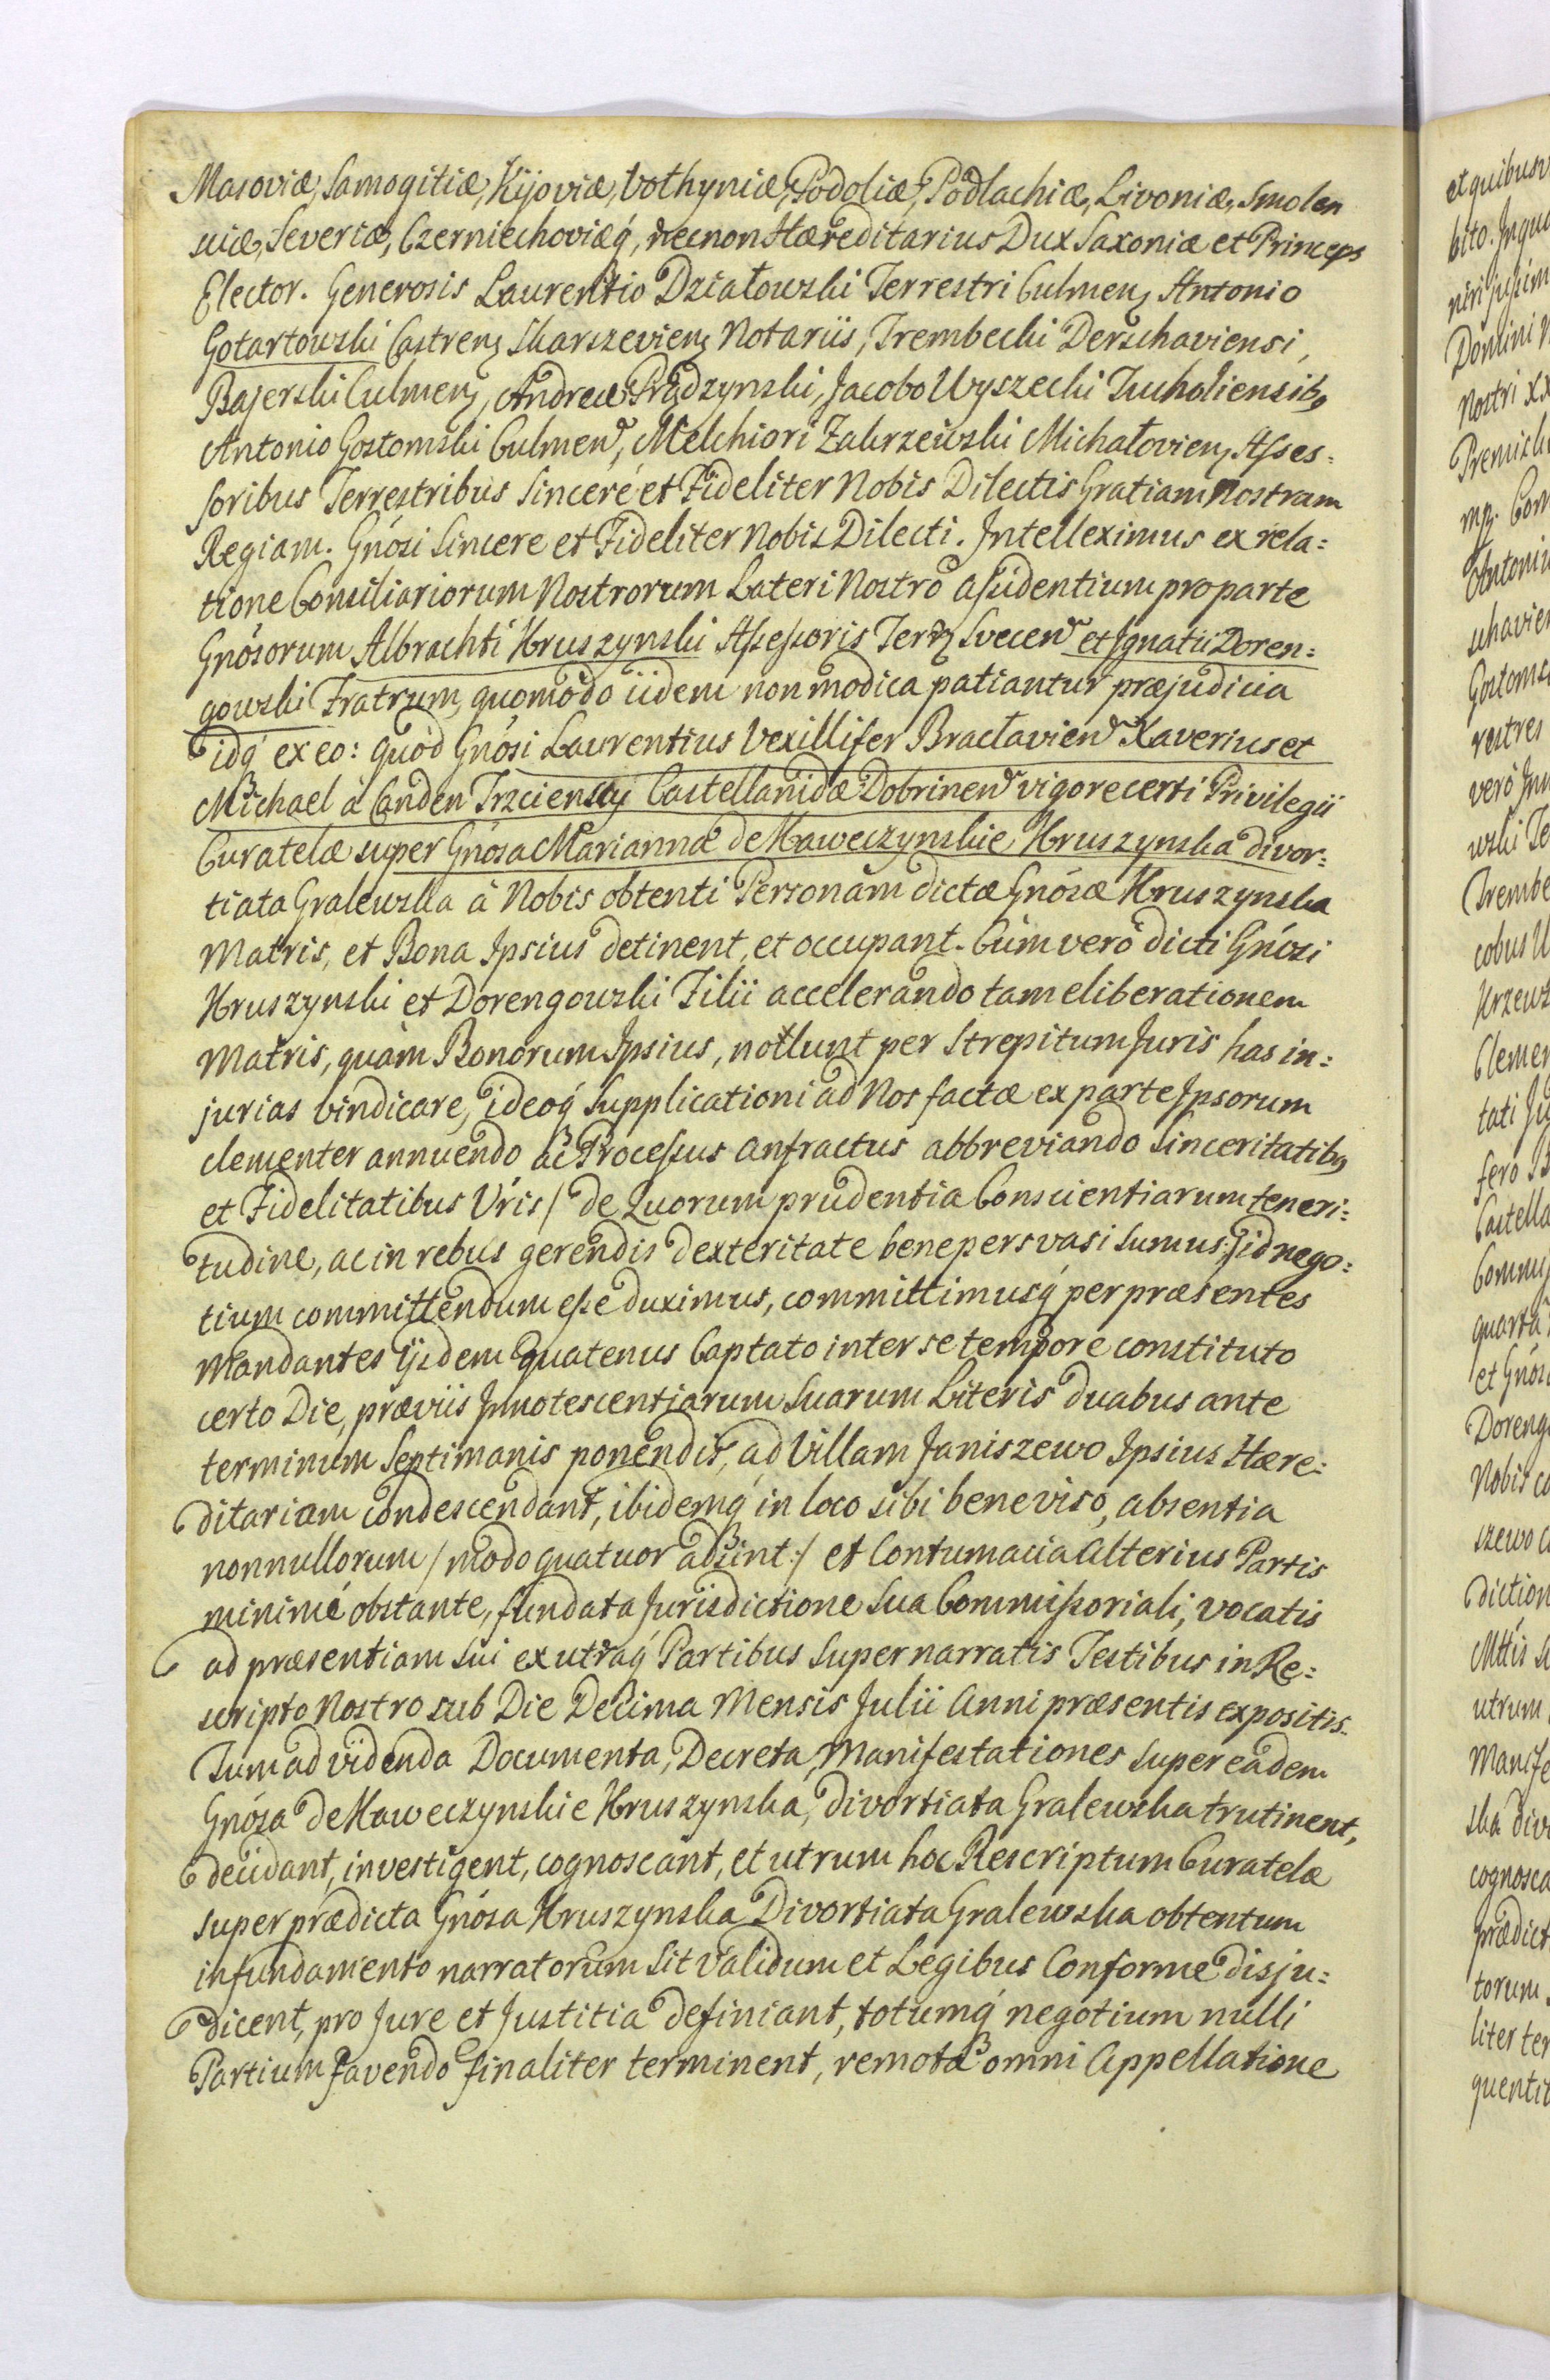 Masoviæ, Samogitiæ, Kijoviæ, Volhyniæ, Podoliæ, Podlachiæ, Livoniæ, Smolen
sciæ, Severiæ, Czerniechoviæq́, necnon Hæreditarius Dux Saxoniæ et Princeps
Elector. Generosis Laurentio Działowski Terrestri Culmenȝ Antonio
Gotartowski Castrenȝ Skarszevienȝ Notariis, Trembecki Derschaviensi,
Bajerski Culmenȝ, Andreæ Prądzynski, Jacobo Wyszecki Tucholiensibȝ
Antonio Gostomski Culmen̄, Melchiori Zakrzewski Michałovienȝ Asses=
soribus Terrestribus Sinceré et Fideliter Nobis Dilectis Gratiam Nostram
Regiam. Gnósi Sincere et Fideliter Nobis Dilecti. Intelleximus ex rela=
tione Consiliariorum Nostrorum Lateri Nostro assidentium pro parte
Gnósorum Albrachti Kruszynski Assessoris Terrȝ Svecen̄ et Ignatii Doren=
gowski Fratrum, quomodo iidem non modica patiantur præjudicia
idq́ ex eo: quòd Gnósi Laurentius Vexillifer Braclavien̄ Xaverius et
Michael à Canden Trzciensky Castellanidæ Dobrinen̄ vigore certi Privilegii
Curatelæ super Gnósa Marianna de Kaweczynskie Kruszynska divor=
tiata Gralewska à Nobis obtenti Personam dictæ Gnósæ Kruszynska
Matris, et Bona Ipsius detinent, et occupant. Cùm verò dicti Gnósi
Kruszynski et Dorengowski Filii accelerando tam eliberationem
Matris, quàm Bonorum Ipsius, nollunt per Strepitum Juris has in=
jurias vindicare, ideoq́ Supplicationi ad Nos factæ ex parte Ipsorum
clementer annuendo ac Processus anfractus abbreviando Sinceritatibȝ
et Fidelitatibus Vŕis /: de Quorum prudentia Conscientiarum teneri=
tudine, ac in rebus gerendis dexteritate bene persvasi sumus :/ id nego=
tium committendum esse duximus, committimusq́ per præsentes
Mandantes ijsdem quatenus Captato inter se tempore constituto
certo Die, præviis Innotescentiarum Suarum Literis duabus ante
terminum Septimanis ponendis, ad Villam Janiszewo Ipsius Hære=
ditariam condescendant, ibidemq́ in loco sibi bene viso, absentia
nonnullorum /: modo quatuor adsint :/ et Contumacia Alterius Partis
minimé obstante, fundata Jurisdictione Sua Commissoriali, vocatis
ad præsentiam Sui ex utraq́ Partibus Super narratis Testibus in Re=
scripto Nostro sub Die Decima Mensis Julii Anni præsentis expositis.
Tum ad videnda Documenta, Decreta, Manifestationes super eadem
Gnósa de Kaweczynskie Kruszynska, divortiata Gralewska trutinent,
decidant, investigent, cognoscant, et utrum hoc Rescriptum Curatelæ
super prædicta Gnósa Kruszynska Divortiata Gralewska obtentum
in fundamento narratorum Sit Validum et Legibus Conforme disju=
dicent, pro Jure et Justitia definiant, totumq́ negotium nulli
Partium favendo finaliter terminent, remotâ omni Appellatione